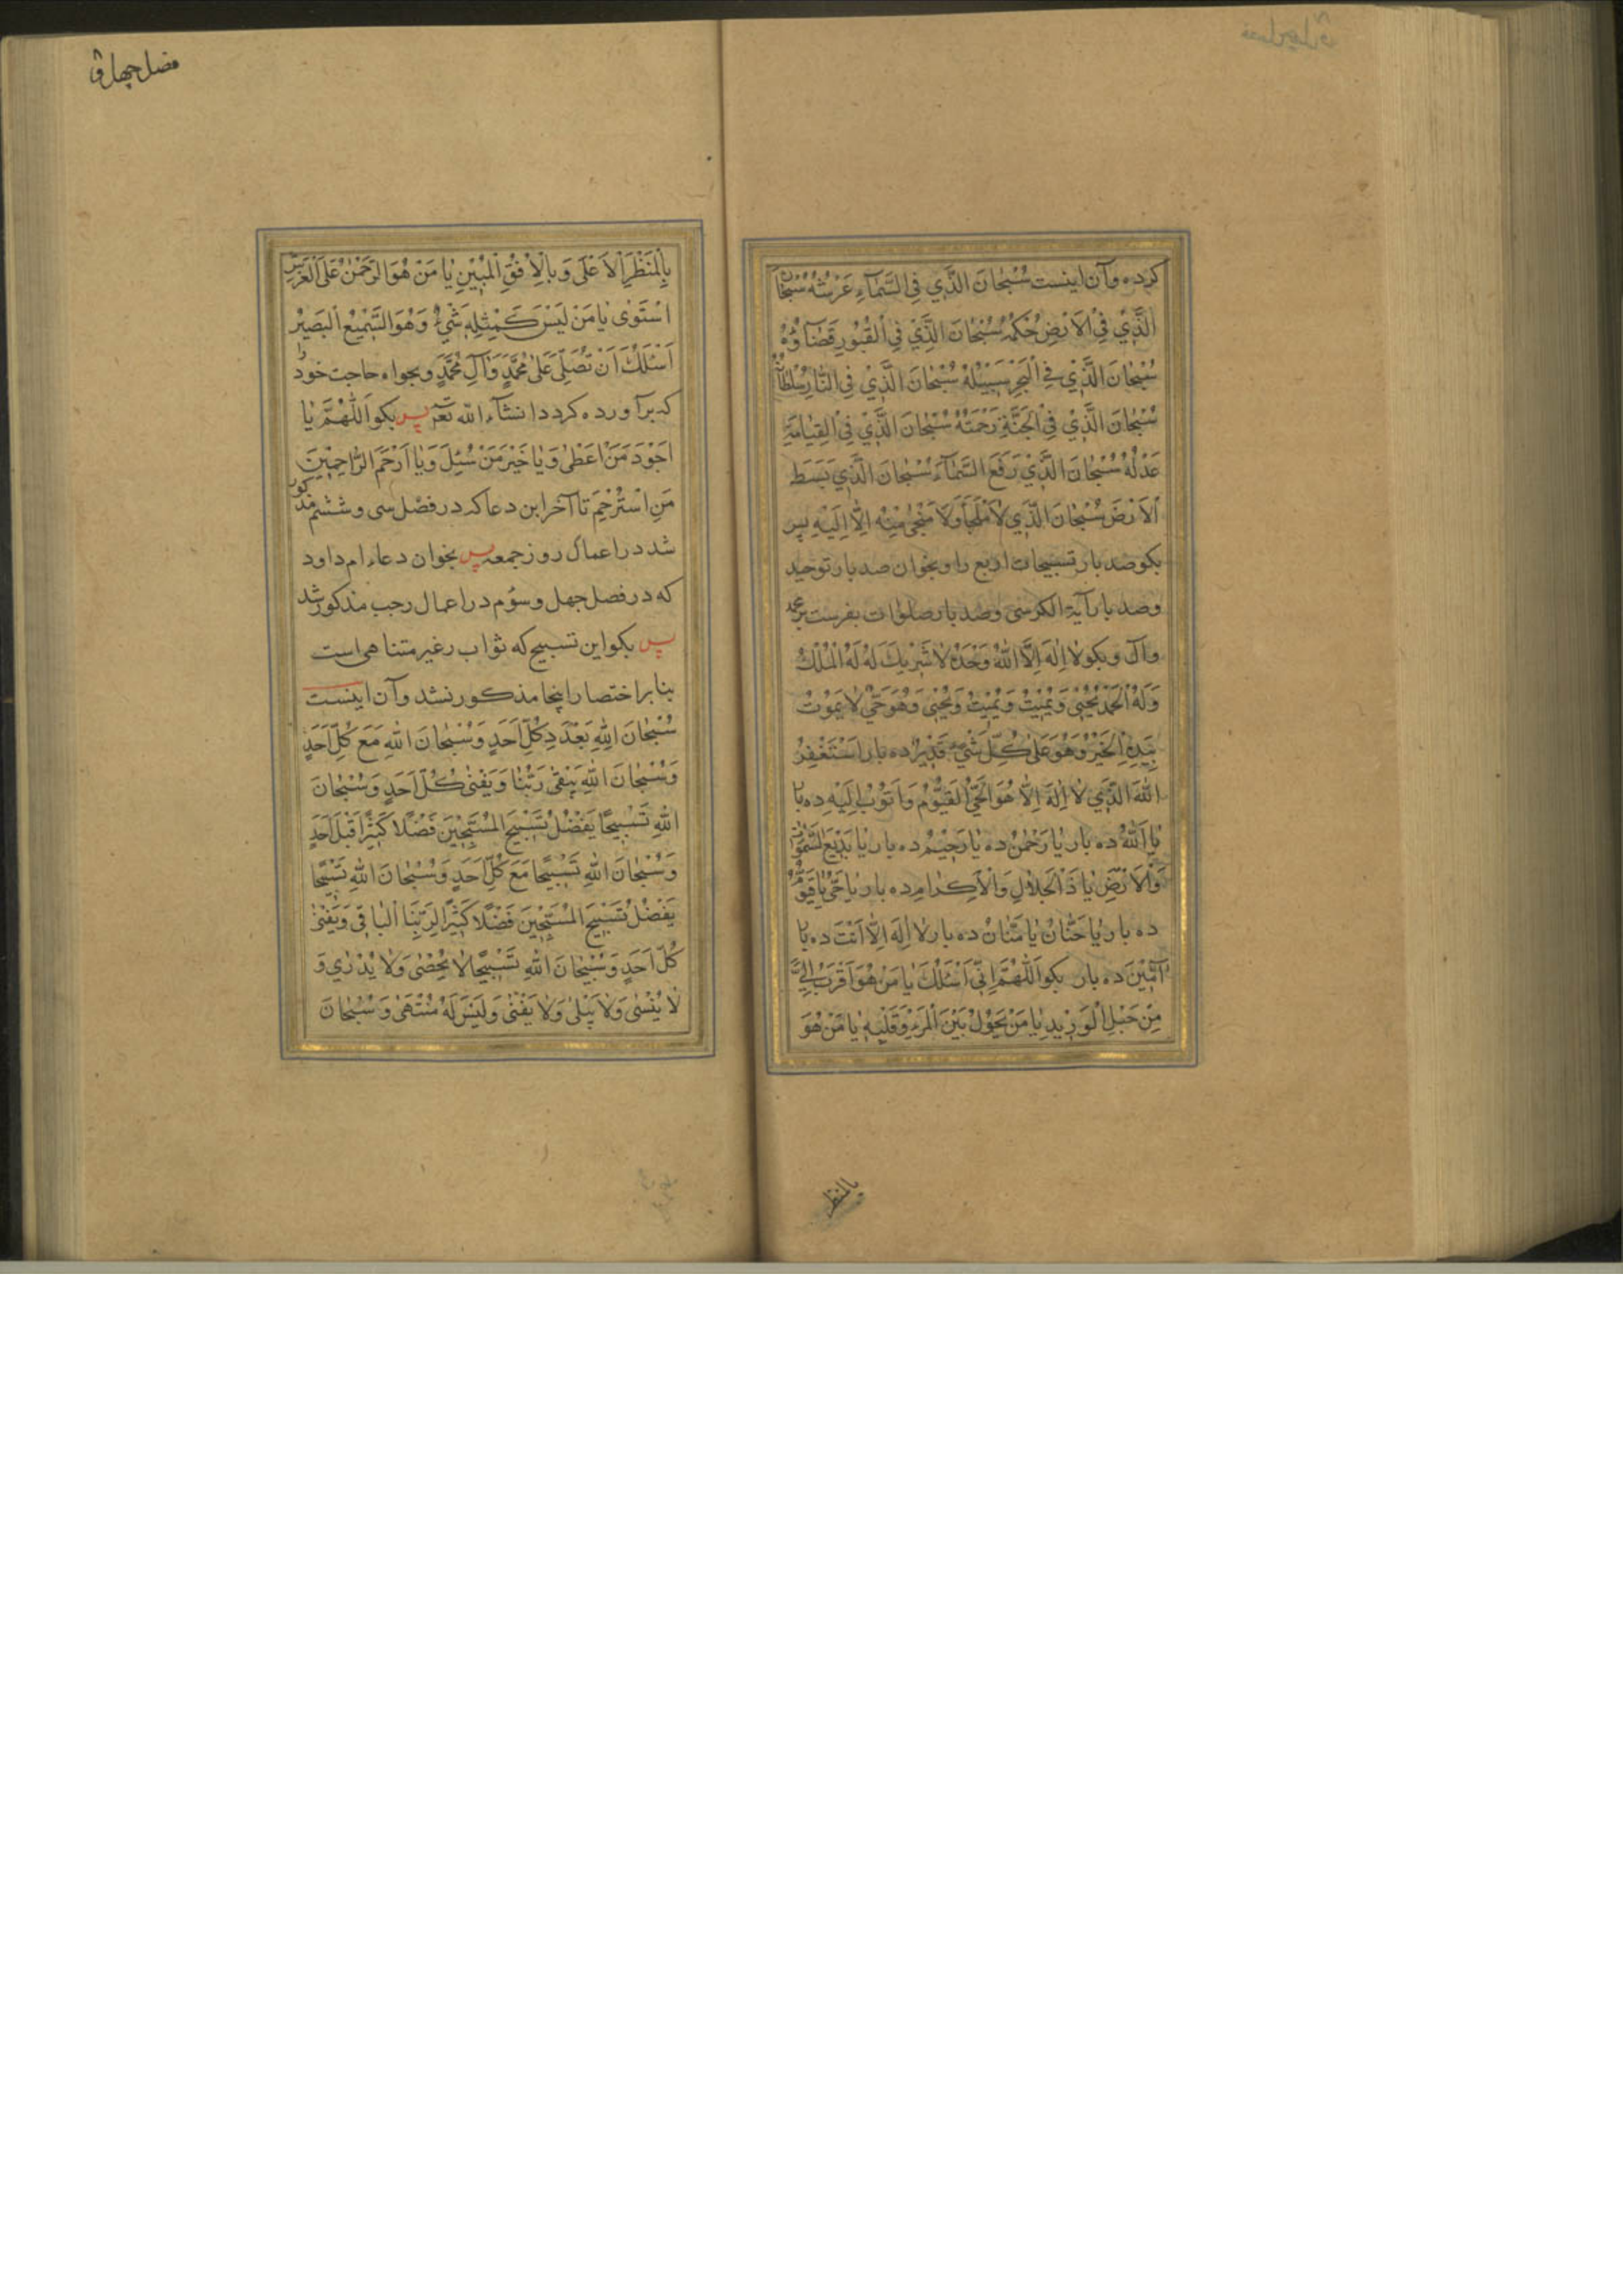 کرده و آن اینست سُبْحانَ الَّذي فِي السَّمآءِ عَرْشُهُ سُبْحانَ
الَّذي فِي الْاَرْضِ حُكْمُهُ سُبْحانَ الَّذي فِي الْقُبُورِ قَضآؤُهُ
سُبْحانَ الَّذي فِي الْبَحْرِ سَبيلُهُ سُبْحانَ الَّذي فِي النّارِ سُلْطانُهُ
سُبْحانَ الَّذي فِي الْجَنَّةِ رَحْمَتُهُ سُبْحانَ الَّذي فِي الْقِيامَةِ
عَدْلُهُ سُبْحانَ الَّذي رَفَعَ السَّمآءَ سُبْحانَ الَّذي بَسَطَ
الْاَرْضَ سُبْحانَ الَّذي لا مَلْجَاَ وَلا مَنْجٰى مِنْهُ اِلّا اِلَيْهِ پس
بکو صد بار تسبیحات اربع را و بخوان صد بار توحید
و صد بار آیة الکرسی و صد بار صلوات بفرست بر محمد
و آل و بکو لا اِلهَ اِلَّا اللهُ وَحْدَهُ لا شَريكَ لَهُ لَهُ الْمُلْكُ
وَلَهُ الْحَمْدُ يُحْيي وَيُميتُ وَيُميتُ وَيُحْيي وَهُوَ حَيٌّ لا يَمُوتُ
بِيَدِهِ الْخَيْرُ وَهُوَ عَلى كُلِّ شَيْءٍ قَديرٌ ده بار اَسْتَغْفِرُ
اللهَ الَّذي لا اِلهَ اِلّا هُوَ الْحَيُّ الْقَيُّومُ وَاَتُوبُ اِلَيْهِ ده با
يا اَللهُ ده بار يا رَحْمنُ ده يا رَحيمُ ده بار يا بَديعَ السَّمٰواتِ
وَالْاَرْضِ يا ذَا الْجَلالِ وَالْاِكْرامِ ده بار يا حَيُّ يا قَيُّومُ
ده بار يا حَنّانُ يا مَنّانُ ده بار لا اِلهَ اِلّا اَنْتَ ده با
آمينَ ده بار بکو اَللّهُمَّ اِنّي اَسْئَلُكَ يا مَنْ هُوَ اَقْرَبُ اِلَيَّ
مِنْ حَبْلِ الْوَريدِ يا مَنْ يَحُولُ بَيْنَ الْمَرْءِ وَقَلْبِهِ يا مَنْ هُوَ
بالمنظر
فصل چهل و
بِالْمَنْظَرِ الْاَعْلى وَبِالْاُفُقِ الْمُبينِ يا مَنْ هُوَ الرَّحْمنُ عَلَى الْعَرْشِ
اسْتَوٰى يا مَنْ لَيْسَ كَمِثْلِهِ شَيْءٌ وَهُوَ السَّميعُ الْبَصيرُ
اَسْئَلُكَ اَنْ تُصَلِّيَ عَلى مُحَمَّدٍ وَآلِ مُحَمَّدٍ و بخواه حاجت خود را
که برآورده کردد انشآء الله تع پس بکو اَللّهُمَّ يا
اَجْوَدَ مَنْ اَعْطٰى وَيا خَيْرَ مَنْ سُئِلَ وَيا اَرْحَمَ الرّاحِمينَ
مَنِ اسْتُرْحِمَ تا آخر این دعا که در فصل سی و ششم مذکور
شد در اعمال روز جمعه پس بخوان دعاء ام داود
که در فصل چهل و سوم در اعمال رجب مذکور شد
پس بکو این تسبیح که ثواب ر غیر متناهی است
بنا بر اختصار اینجا مذکور نشد و آن اینست
سُبْحانَ اللهِ بِعَدَدِ كُلِّ اَحَدٍ وَسُبْحانَ اللهِ مَعَ كُلِّ اَحَدٍ
وَسُبْحانَ اللهِ يَبْقٰى رَبُّنا وَيَفْنٰى كُلُّ اَحَدٍ وَسُبْحانَ
اللهِ تَسْبيحًا يَفْضُلُ تَسْبيحَ الْمُسَبِّحينَ فَضْلًا كَثيرًا قَبْلَ كُلِّ اَحَدٍ
وَسُبْحانَ اللهِ تَسْبيحًا مَعَ كُلِّ اَحَدٍ وَسُبْحانَ اللهِ تَسْبيحًا
يَفْضُلُ تَسْبيحَ الْمُسَبِّحينَ فَضْلًا كَثيرًا لِرَبِّنَا الْباقي وَيَفْنٰى
كُلُّ اَحَدٍ وَسُبْحانَ اللهِ تَسْبيحًا لا يُحْصٰى وَلا يُدْرٰي وَ
لا يُنْسٰى وَلا يَبْلٰى وَلا يَفْنٰى وَلَيْسَ لَهُ مُنْتَهٰى وَسُبْحانَ